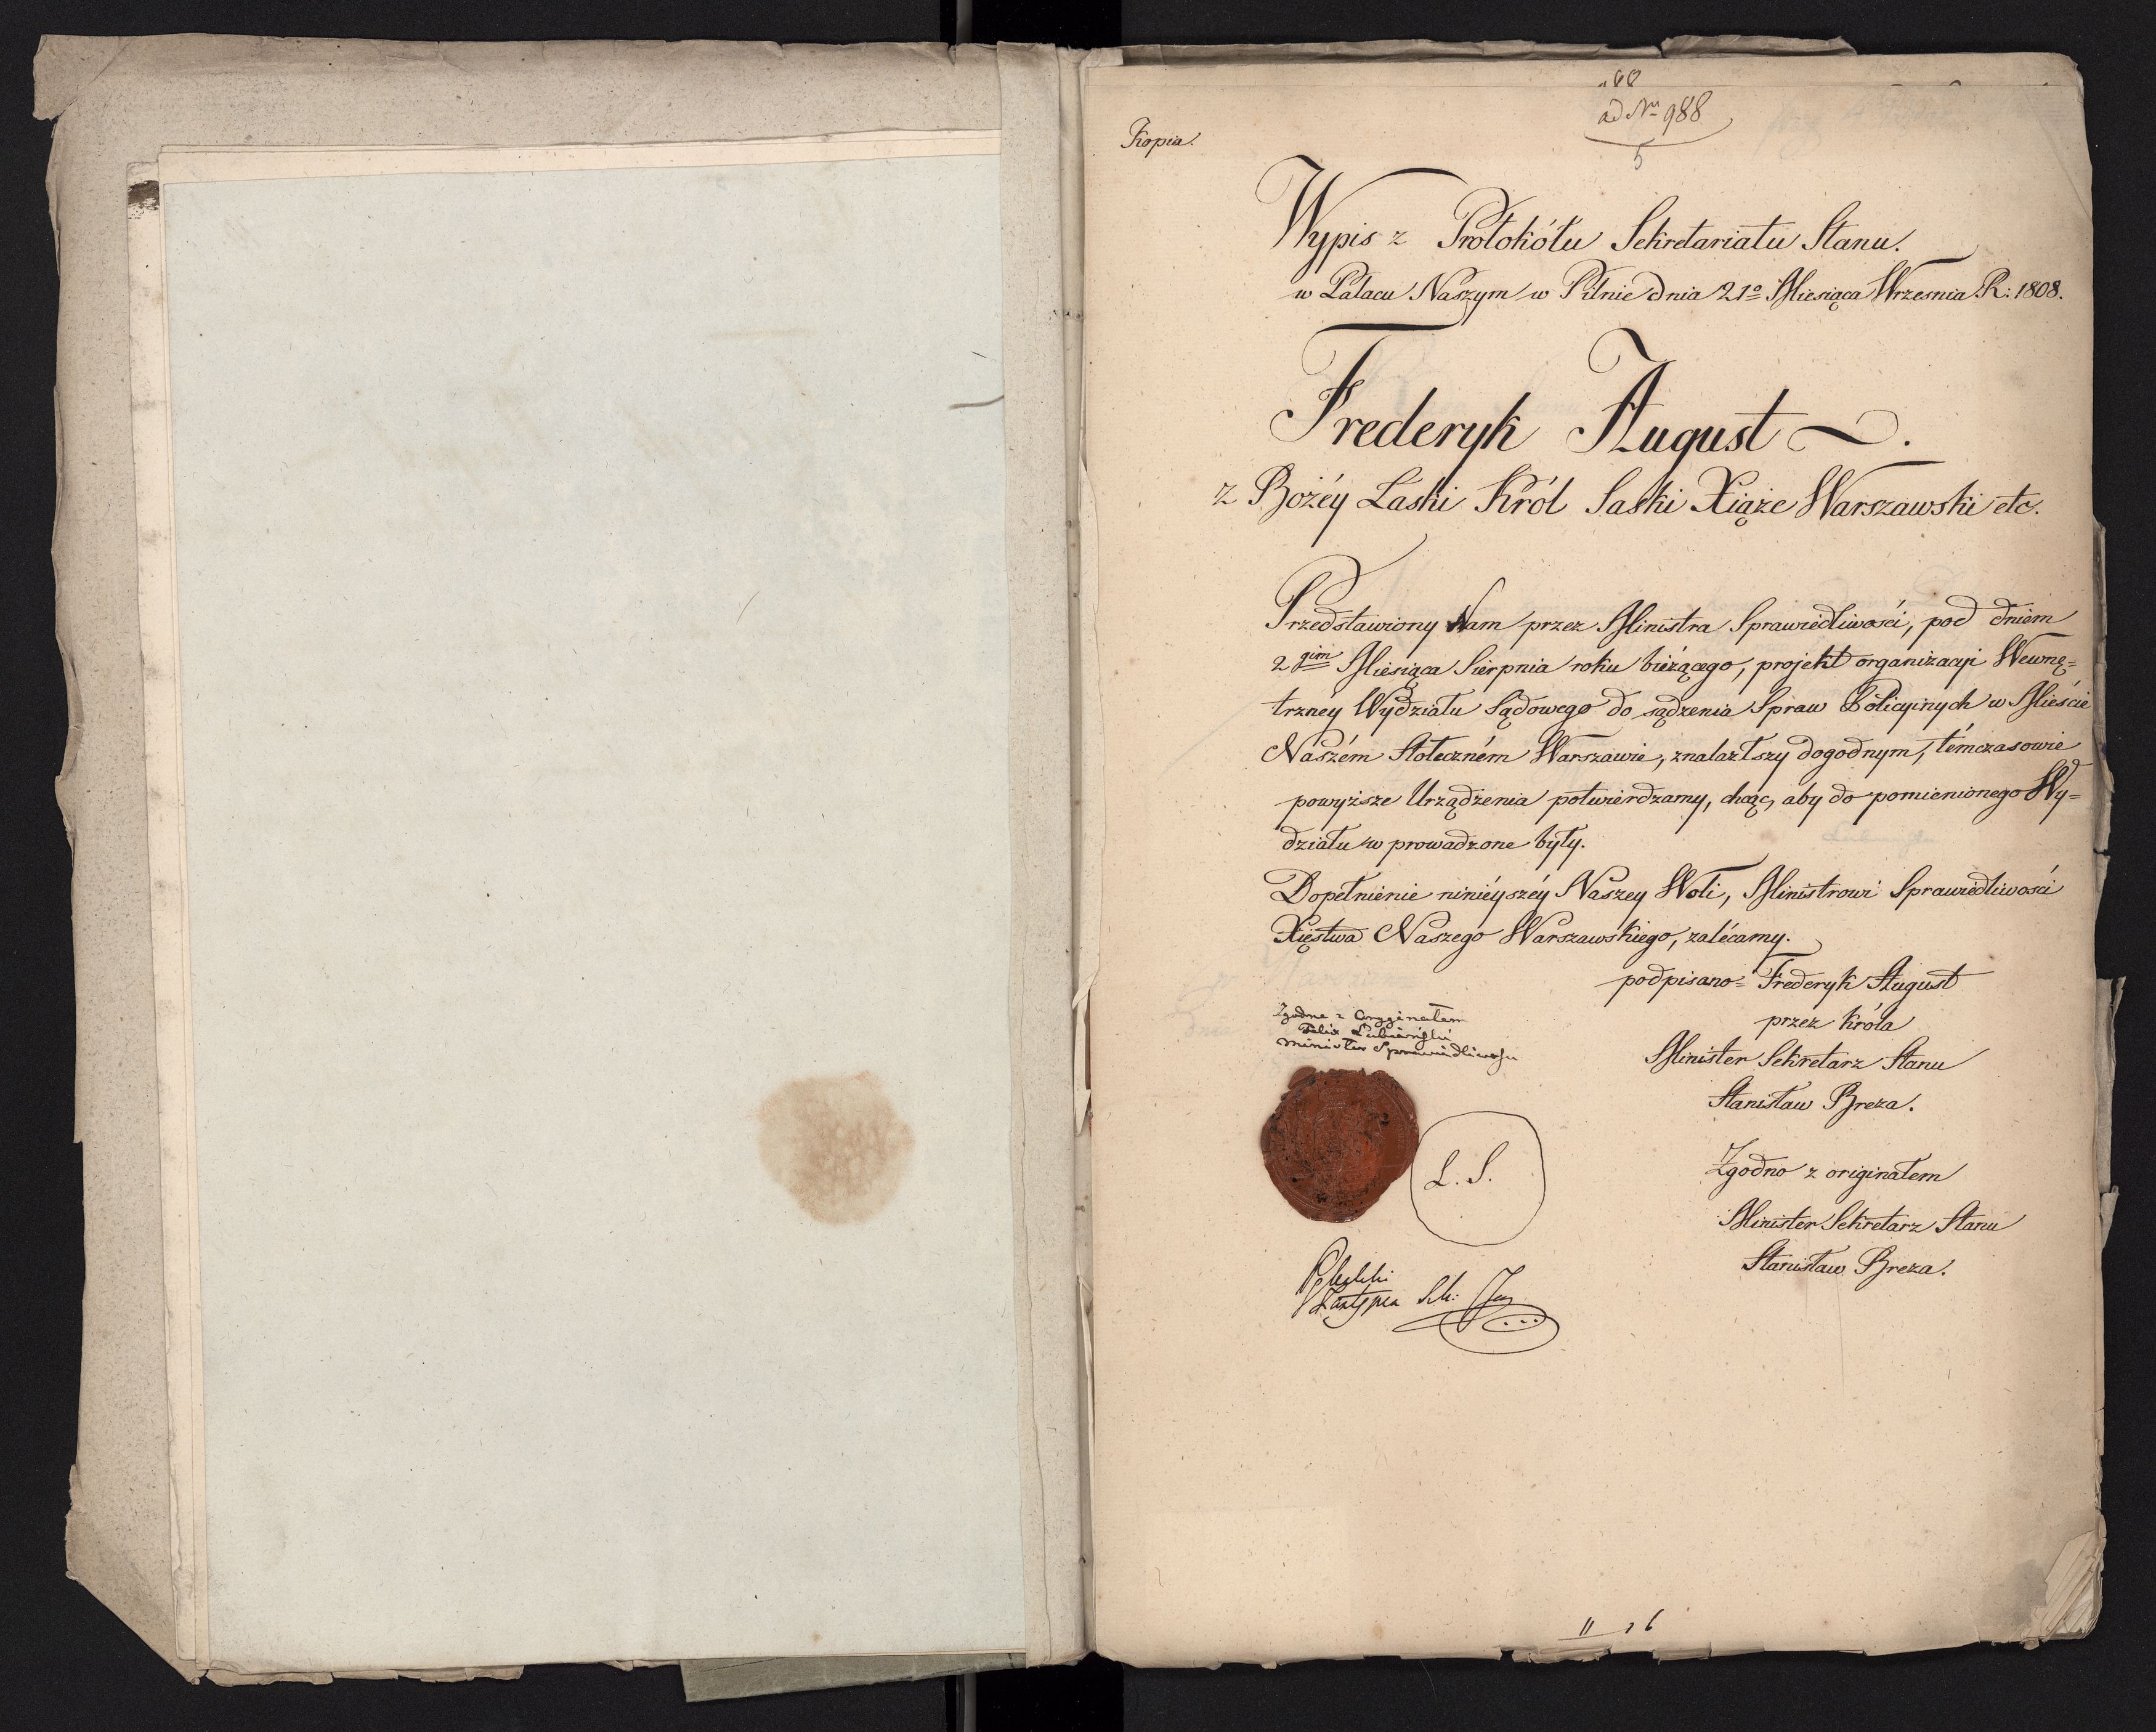 ad Nr 988
5
Kopia.
Wypis z Protokółu Sekretariatu Stanu.
w Pałacu Naszym w Pilnie dnia 21o Miesiąca Wrzesnia R: 1808.
Frederyk August
z Bożéy Łaski Król Saski Xiąże Warszawski etc.
Przedstawiony Nam przez Ministra Sprawiedliwości, pod dniem
2gim Miesiąca Sierpnia roku bieżącego, projekt organizacyi Wewnę=
trznéy Wydziału Sądowego do sądzenia Spraw Policyinych w Mieście
Naszém Stołeczném Warszawie, znalazłszy dogodnym, témczasowie
powyższe Urządzenia potwierdzamy, chcąc, aby do pomienionego Wy=
działu w prowadzone były.
Dopełnienie ninieyszéy Naszey Woli, Ministrowi Sprawiedliwości
Xięstwa Naszego Warszawskiego, zalécamy.
podpisano= Frederyk August
przez Króla
Minister Sekretarz Stanu
Stanisław Breza.
Zgodne z Oryginałem
Felix Łubieński
Minister Sprawiedliwości
L. S.
Zgodno z originałem
Minister Sekretarz Stanu
Stanisław Breza.
Zastępca Sek: